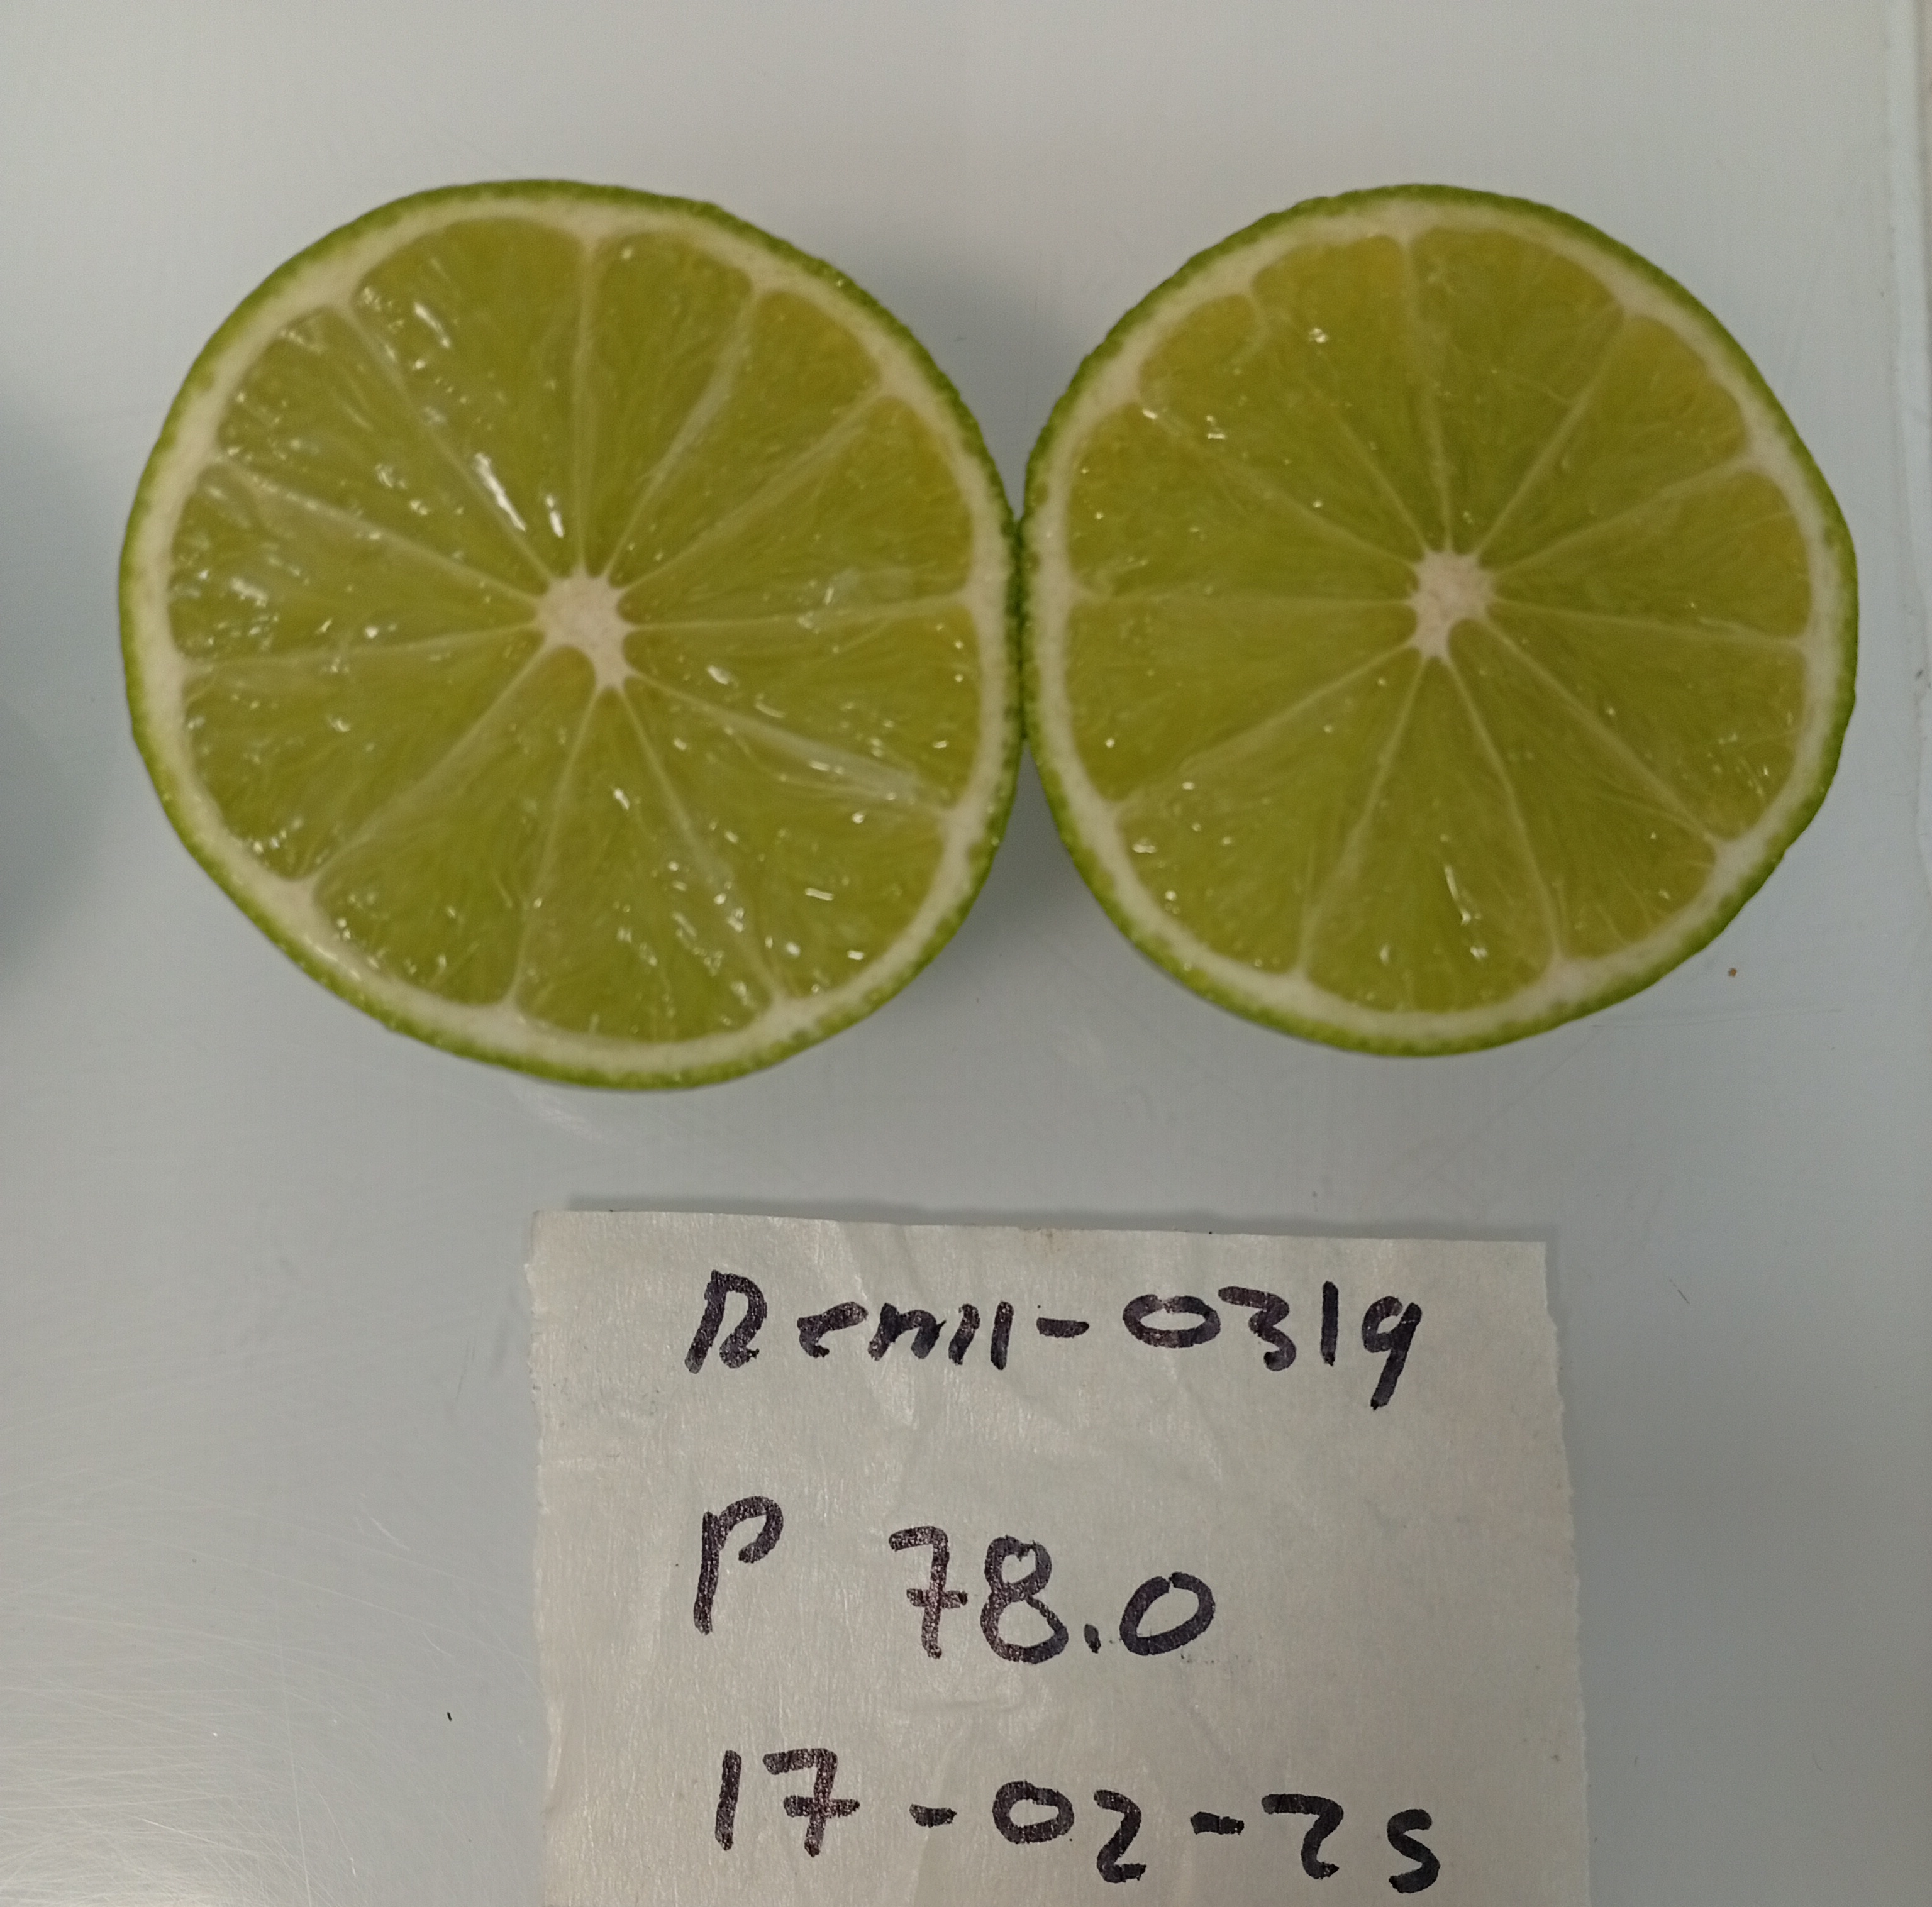 Remi-0319
P 78.0
17-02-25